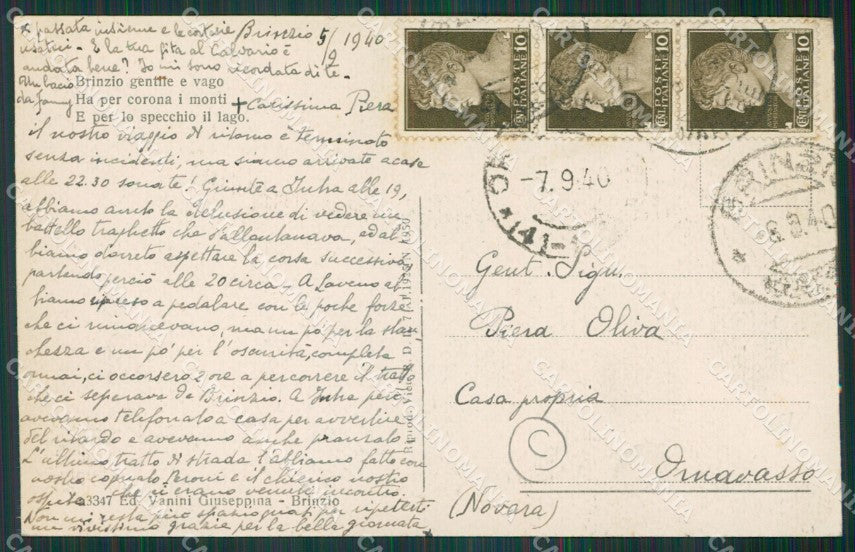 Brinzio 5/9 1940
Brinzio gentile e vago
Ha per corona i monti
E per lo specchio il lago.
+ Carissima Piera
il nostro viaggio di ritorno è terminato
senza incidenti, ma siamo arrivate a casa
alle 22.30 sonate! Giunte a Intra alle 19,
abbiamo avuto la delusione di vedere un
battello traghetto che s'allontanava, ed ab
biamo dovuto aspettare la corsa successiva
partendo perciò alle 20 circa. A Laveno ab
biamo ripreso a pedalare con le poche forze
che ci rimanevano, ma un pò per la stan
chezza e un pò per l'oscurità, completa
ormai, ci occorsero 2 ore a percorrere il tratto
che ci separava da Brinzio. A Intra però
avevamo telefonato a casa per avvertire
del ritardo e avevamo anche pranzato
L'ultimo tratto di strada l'abbiamo fatto con
nostro cognato Peroni e il chierico nostro
ospite che ci erano venuti incontro.
Non mi resta più spazio quasi per ripeterti
un vivissimo grazie per la bella giornata
x passata insieme e le cortesie
usateci - E la tua gita al Calvario è
andata bene? Io mi sono ricordata di te -
Un bacio
da Fanny
a3347 Ed. Vanini Giuseppina - Brinzio
10 POSTE ITALIANE CENT
10 POSTE ITALIANE CENT
10 POSTE ITALIANE CENT
-7.9.40
BRINZIO
6.9.40
Gent. Sig.na
Piera Oliva
Casa propria
C
Ornavasso
(Novara)
CARTOLINOMANIA